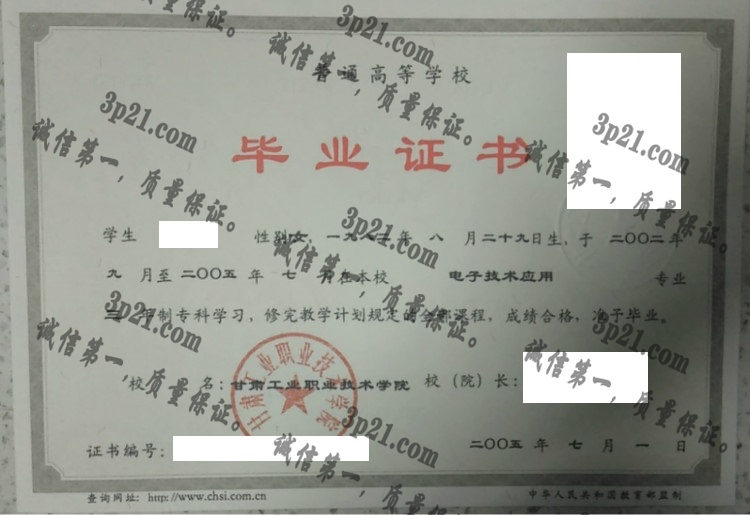 普通高等学校
毕业证书
学生 性别女，一九八二年 八 月二十九日生，于 二〇〇二年
九 月至二〇〇五年 七 月在本校 电子技术应用 专业
三 年制专科学习，修完教学计划规定的全部课程，成绩合格，准予毕业。
校 名：甘肃工业职业技术学院 校（院）长：
甘肃工业职业技术学院
证书编号： 二〇〇五 年 七 月 一 日
查询网址：http://www.chsi.com.cn 中华人民共和国教育部监制
3p21.com
诚信第一，质量保证。
3p21.com
诚信第一，质量保证。
3p21.com
诚信第一，质量保证。
3p21.com
诚信第一，质量保证。
3p21.com
诚信第一，质量保证。
3p21.com
诚信第一，质量保证。
3p21.com
诚信第一，质量保证。
质量保证。